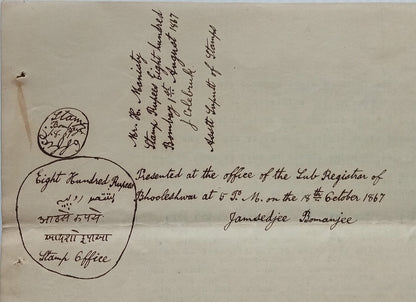 Mr. H. Manisty
Stamp Rupees Eight hundred
Bombay 1st August 1867
J Colebrook
Asstt Supdt of Stamps
Stamp
Bombay
Eight Hundred Rupees
आठसे रुपये
આઠસો રૂપીઆ
Stamp Office
Presented at the office of the Sub Registrar of
Bhooleshwar at 5 P. M. on the 18th October 1867
Jamsedjee Bomanjee